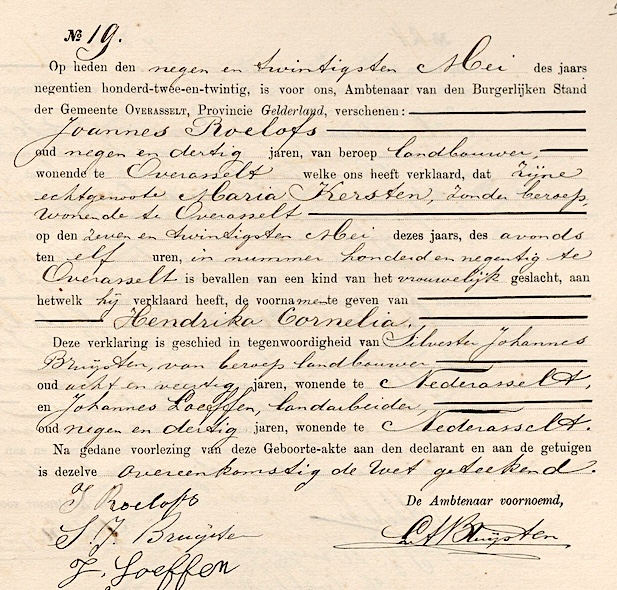 № 19.
Op heden den negen en twintigsten Mei des jaars
negentien honderd-twée-en-twintig, is voor ons, Ambtenaar van den Burgerlijken Stand
der Gemeente OVERASSELT, Provincie Gelderland, verschenen:
Joannes Roelofs
oud negen en dertig jaren, van beroep landbouwer,
wonende te Overasselt welke ons heeft verklaard, dat Zijne
echtgenoote Maria Kersten, zonder beroep,
wonende te Overasselt
op den zeven en twintigsten Mei dezes jaars, des avonds
ten elf uren, in nummer honderd en negentig te
Overasselt is bevallen van een kind van het vrouwelijk geslacht, aan
hetwelk hij verklaard heeft, de voornamente geven van
Hendrika Cornelia.
Deze verklaring is geschied in tegenwoordigheid van Silvester Johannes
Bruijsten, van beroep landbouwer
oud acht en veertig jaren, wonende te Nederasselt,
en Johannes Loeffen, landarbeider,
oud negen en dertig jaren, wonende te Nederasselt.
Na gedane voorlezing van deze Geboorte-akte aan den declarant en aan de getuigen
is dezelve overeenkomstig de wet geteekend.
J Roelofs
De Ambtenaar voornoemd,
S. J. Bruijsten
Bruijsten
J. Loeffen